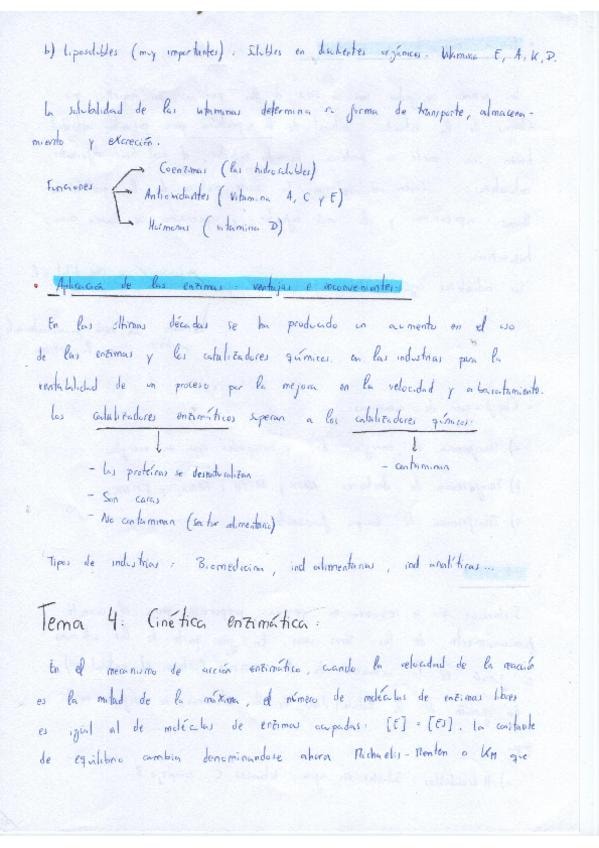 b) Liposolubles (muy importantes). Solubles en disolventes orgánicos. Vitamina E, A, K, D.
La solubilidad de las vitaminas determina su forma de transporte, almacena-
miento y excreción.
Funciones
Coenzimas (las hidrosolubles)
Antioxidantes (Vitamina A, C y E)
Hormonas (vitamina D)
• Aplicación de las enzimas: ventajas e inconvenientes:
En las últimas décadas se ha producido un aumento en el uso
de las enzimas y los catalizadores químicos en las industrias para la
rentabilidad de un proceso por la mejora en la velocidad y abaratamiento.
Los catalizadores enzimáticos superan a los catalizadores químicos:
- Las proteínas se desnaturalizan
- Son caras
- No contaminan (sector alimentario)
- contaminan
Tipos de industrias: Biomedicina, ind alimentarias, ind analíticas...
Tema 4: Cinética enzimática:
En el mecanismo de acción enzimática, cuando la velocidad de la reacción
es la mitad de la máxima, el número de moléculas de enzimas libres
es igual al de moléculas de enzimas ocupadas: [E] = [ES]. La constante
de equilibrio cambia denominandose ahora Michaelis-Menten o KM que